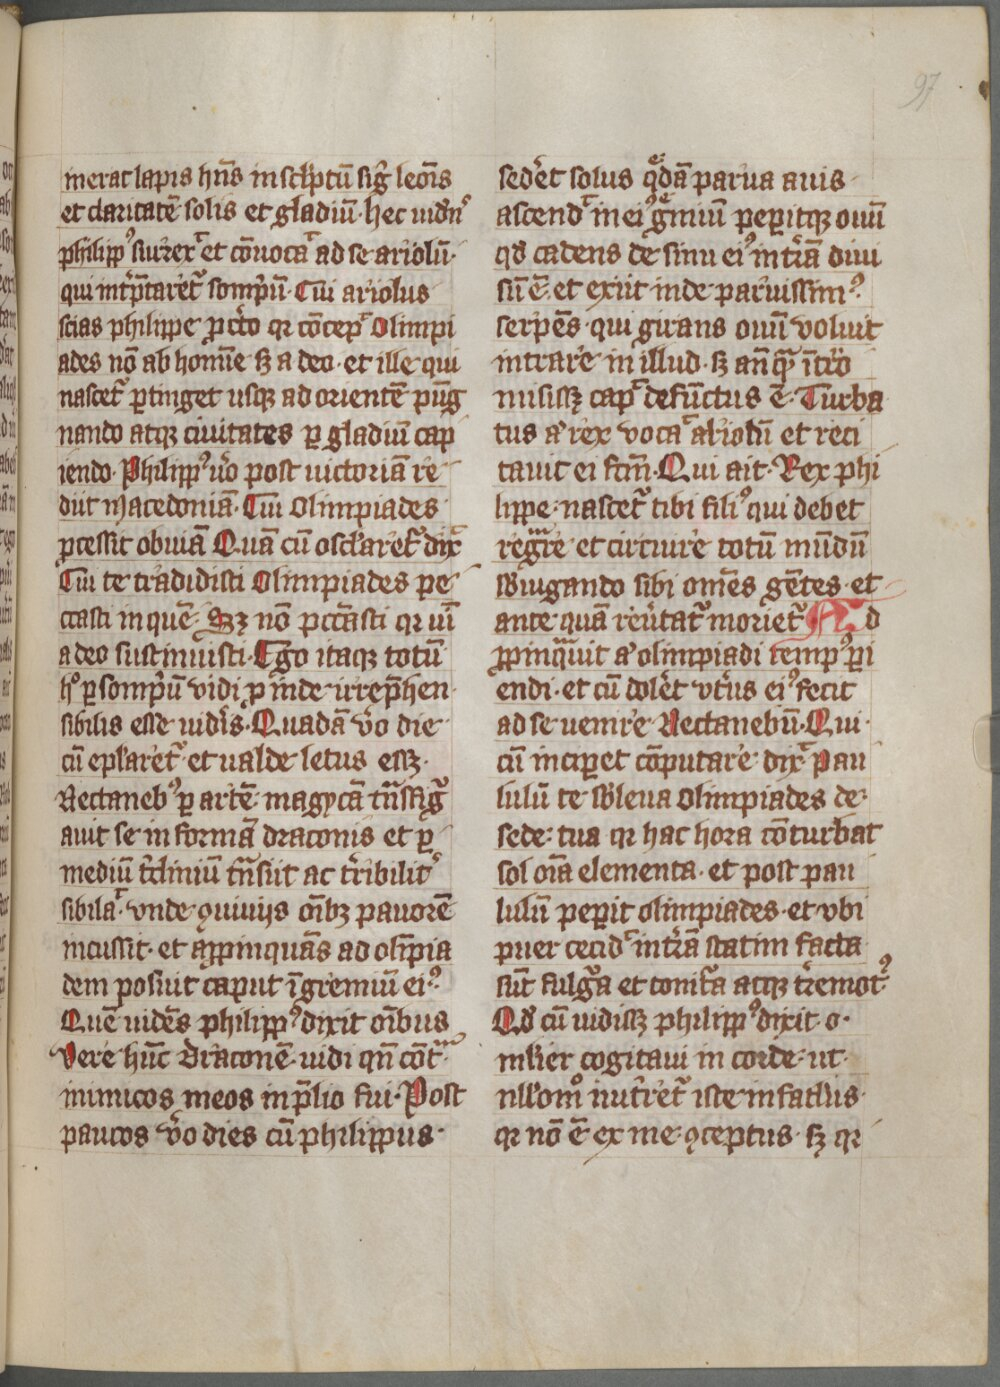 97
merat lapis hn̄s in sclptū siḡ leōis
et claritatē solis et gladiū · hec uidn᷒
philipp᷒ surrex͛ et cōuoca͛ ad se ariolū ·
qui int͛p̄taret᷑ sompn̄ū · Cui ariolus
scias philippe ꝓ cto qr cōcep͛ Olimpi
ades nō ab homīe sꝫ a deo · et ille qui
nascet᷑ ꝑtinget usqꝫ ad orientē pūg
nando atqꝫ ciuitates ꝑ gladiū cap
iendo · Philipp᷒ u̾o post uictoriā re
diit Macedoniā · Cui Olimpiades
ꝓcessit obuiā Quā cū oscl̄aret᷑ dix͛
Cui te tradidisti Olimpiades pe
ccasti in quē · Sꝫ nō pctāsti qr uī
a deo sustinuisti · Ego itaqꝫ totū
h᷒ ꝑ sompn̄ū vidi ꝑ inde irrep̄hen
sibilis esse uid̾is · Quadā v̾o die
cū epl̄aret᷑ · et ualde letus essꝫ ·
Nectaneb᷒ ꝑ artē magycā tn̄sfig᷑
auit se in formā draconis et ꝑ
mediū tclīniū tn̄siit ac tribilit᷒
sibila͛ · vnde ꝯuiuijs oībꝫ pauorē
incussit · et aꝓpinquās ad olīpia
dem posuit caput ī gremiū ei᷒ ·
Quē uidēs philipp᷒ dixit oībus
Vere hūc draconē uidi qn̄ cōt᷑
inimicos meos in p̄lio fui · Post
paucos v̾o dies cū philippus ·
sed̾et solus q̄dā parua auis
ascend͛ in ei᷒ g̾miū peperitqꝫ ouū
qd̾ cadens de sinu ei᷒ in t̾rā diui
sū ē · et exiit inde paruissim᷒ ·
serpēs · qui girans ouū voluit
intrare in illud · sꝫ an̄ qͣ īt̾o
misissꝫ cap͛ defūctus ē · Turba
tus a᷒ rex voca͛ ariolū et reci
tauit ei fcm̄ · Qui ait · Rex phi
lippe · nascet᷑ tibi fili᷒ qui debet
regᷓre et circuire totū mūdū
sb̾iugando sibi om̄es gētes · et
ante quā reu̾tat᷑ moriet᷑ Ad
ꝓpinqᷓuit a᷒ olimpiadi temp᷒ ꝑi
endi · et cū dol̾et vt̾us ei᷒ fecit
ad se uenire Nectanebū · Qui ·
cū inciꝑet cōputare dix͛ Pau
lulū te sb̾leua Olimpiades de
sede · tua qr hac hora cōturbat
sol oīa elementa · et post pau
lulū peperit olimpiades · et vbi
puer cecid͛ in t̾rā statim facta
sūt fulgᷓa et tonit̾a atqꝫ t̾remot᷒
Qd̾ cū uidissꝫ philipp᷒ dixit · o ·
ml̾ier cogitaui in corde · ut ·
nllom̊ nutriret᷑ iste infatlus ·
qr nō ē ex me ꝯceptus · sꝫ qr